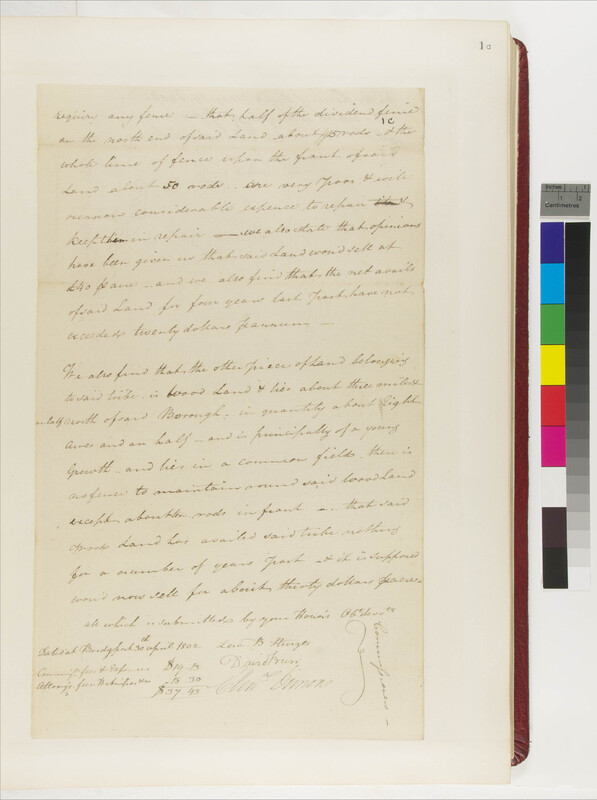 1a
require any fence – that half of the dividend fence
1c
on the north end of said Land about 15 rods & the
whole line of fence upon the front of said
Land about 50 rods are very poor & will
considerable expence to repair &
keep them in repair – we also state that opinions
have been given us that said Land would sell at
£40 acre – and we also find that the net avails
of said Land for four years last past have not
exceeded twenty dollars annum –
We also find that the other piece of Land belonging
to said tribe is wood Land & lies about three miles &
an half north of said Borough – in quantity about Eight
Acres and an half – and is principally of a young
Growth – and lies in a common field – there is
no fence to maintain round said woodland
except about rods in front – that said
wood Land has availed said tribe nothing
for a number of years past & it is supposed
would now sell for about thirty dollars acre
all which is submitted by your Honors Obt
Dated at Bridgeport 30th April 1802
Commissioners
fees & Expences
$37 43
inches
1 2
Centimetres